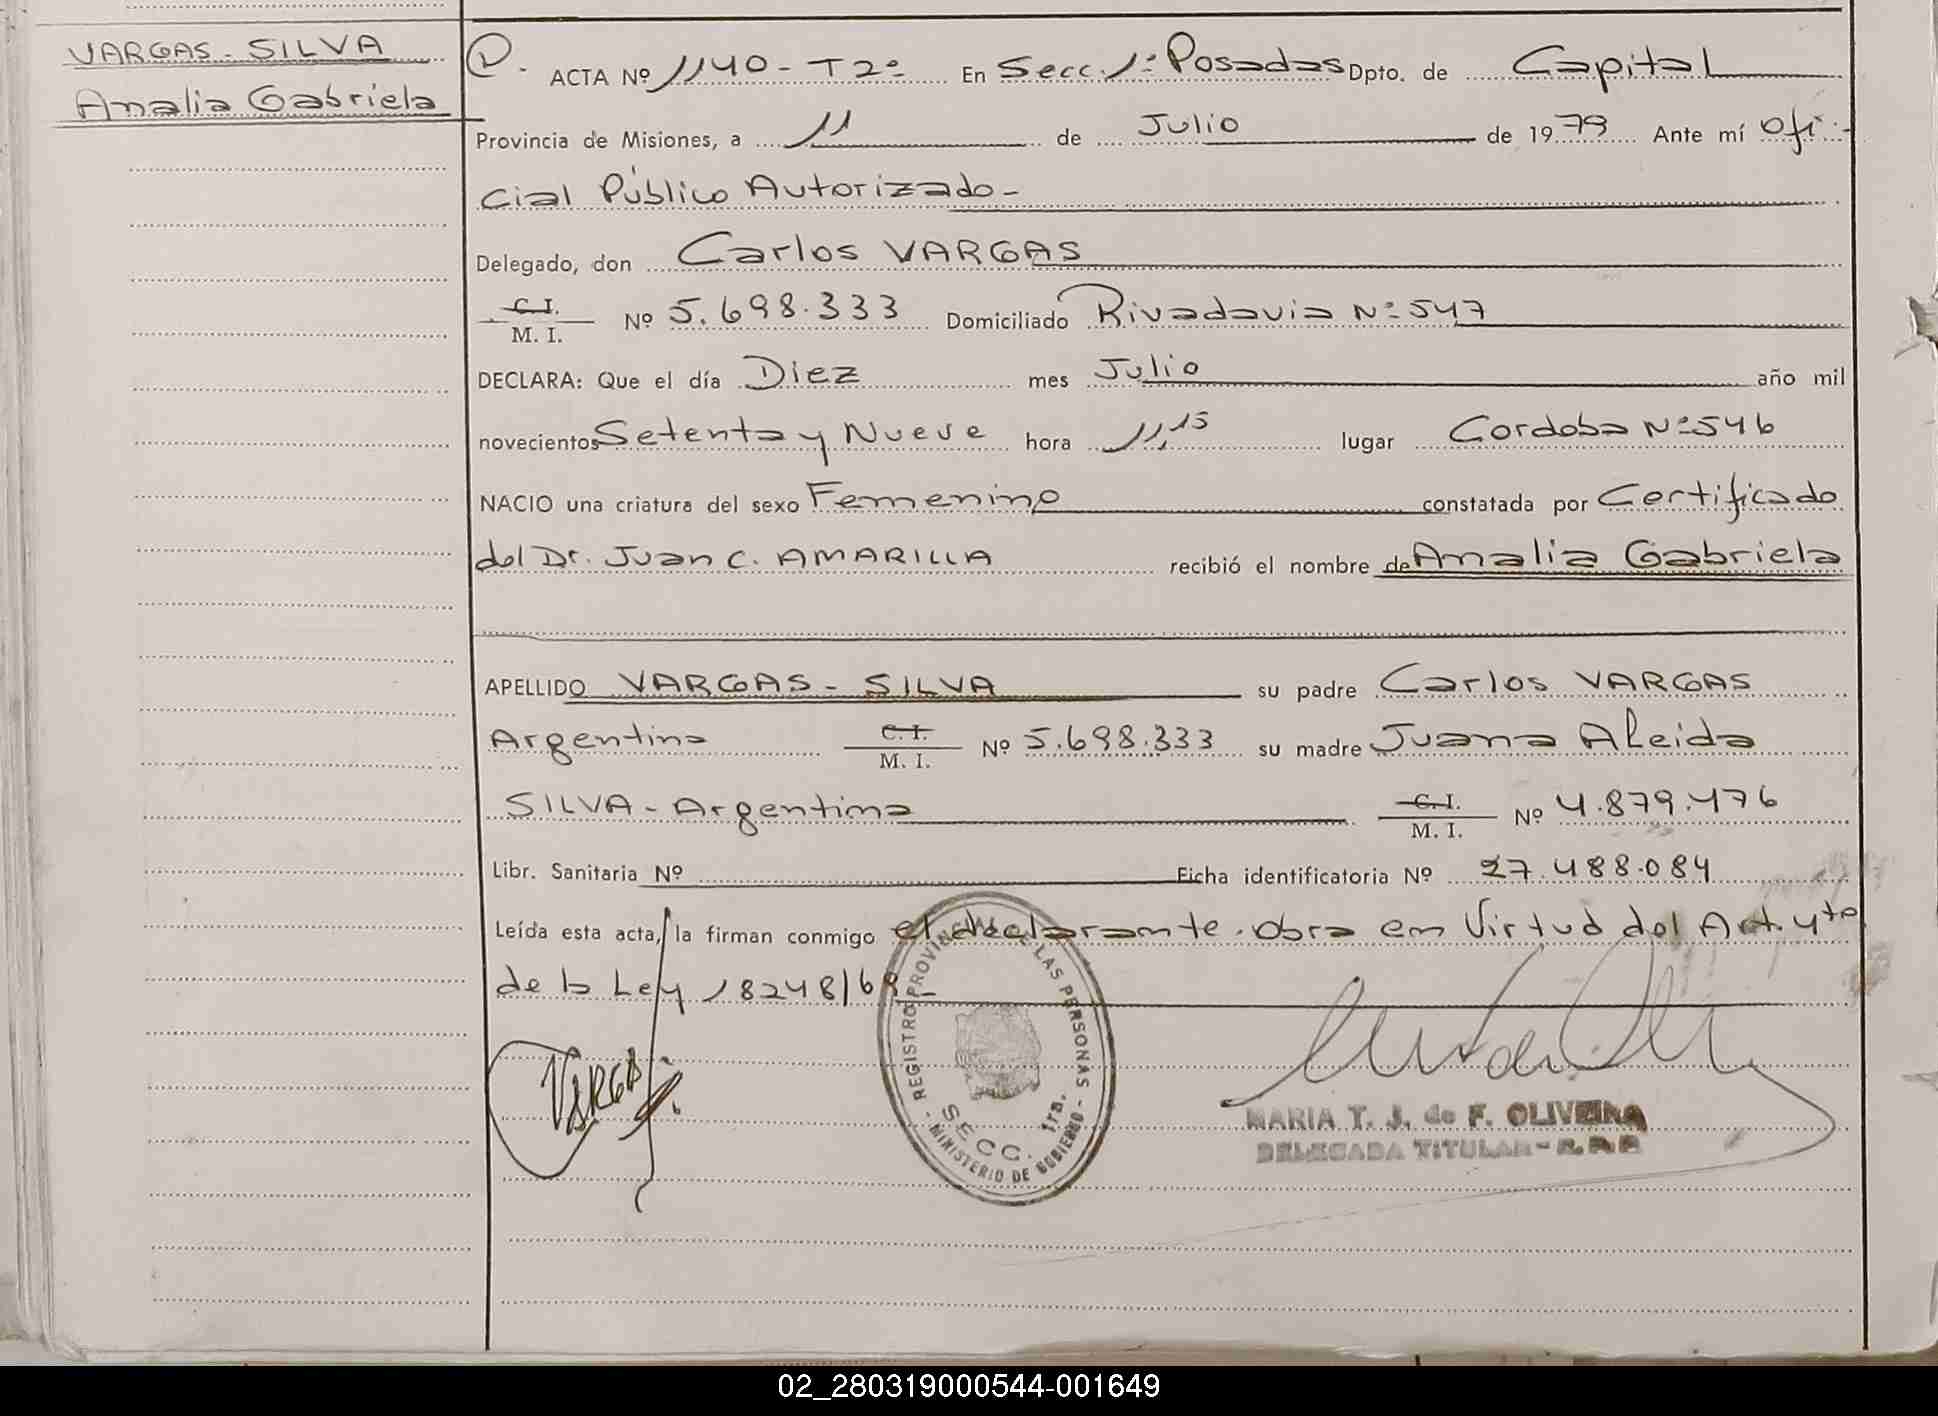 VARGAS - SILVA
Analia Gabriela
ACTA Nº 1140 - T2º En Secc. 1º Posadas Dpto. de Capital
Provincia de Misiones, a 11 de Julio de 1979 Ante mí Ofi-
cial Público Autorizado -
Delegado, don Carlos VARGAS
C.I.
M. I. Nº 5.698.333 Domiciliado Rivadavia Nº 547
DECLARA: Que el día Diez mes Julio año mil
novecientos Setenta y Nueve hora 11,15 lugar Cordoba Nº 546
NACIO una criatura del sexo Femenino constatada por Certificado
del Dr. Juan C. AMARILLA recibió el nombre de Analia Gabriela
APELLIDO VARGAS - SILVA su padre Carlos VARGAS
Argentino C.I. M. I. Nº 5.698.333 su madre Juana Aleida
SILVA - Argentina C.I. M. I. Nº 4.879.476
Libr. Sanitaria Nº Ficha identificatoria Nº 27.488.084
Leída esta acta, la firman conmigo el declarante. obra en Virtud del Art. 4to
de la Ley 18248/69 -
VARGAS
REGISTRO PROVINCIAL DE LAS PERSONAS - MINISTERIO DE GOBIERNO -
SECC. 1ra.
MARIA T. J. de F. OLIVEIRA
DELEGADA TITULAR - R.P.P.
02_280319000544-001649